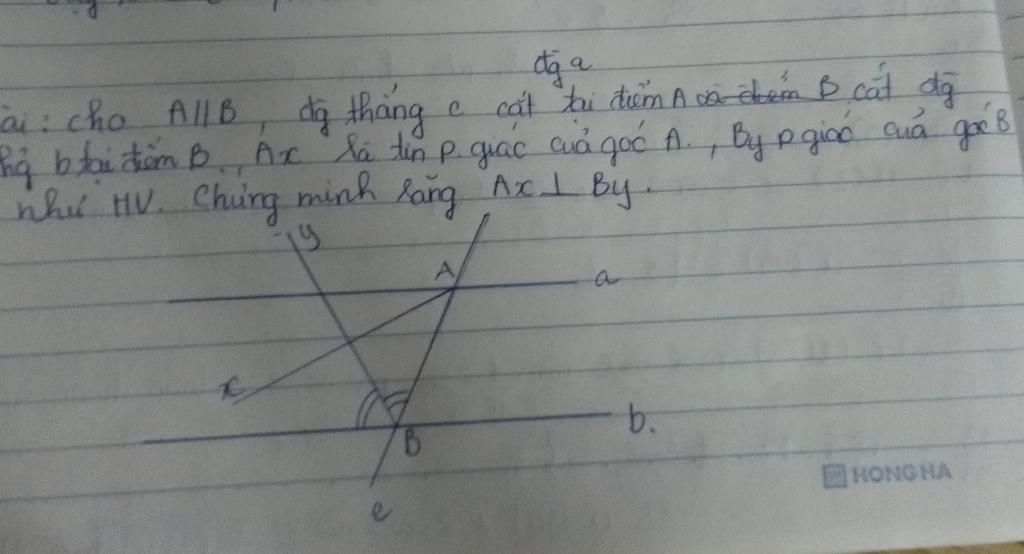 đg a
ài : cho A//B, đg thẳng c cắt tại điểm A và điểm B cắt đg
hg b tại điểm B, Ax là tin p.giác của góc A., By p giác của góc B
như HV. Chứng minh rằng Ax ⊥ By.
y
A
a
x
B
b.
c
HONG HA